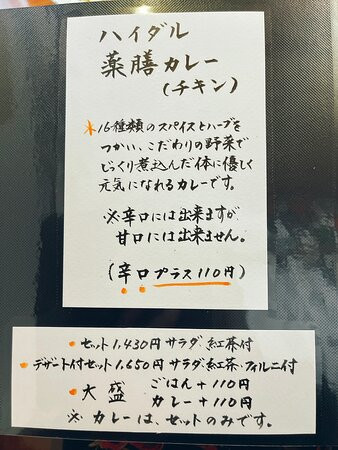 ハイダル
薬膳カレー
(チキン)
*16種類のスパイスとハーブを
つかい、こだわりの野菜で
じっくり煮込んだ体に優しく
元気になれるカレーです。
※辛口には出来ますが
甘口には出来ません。
(辛口プラス110円)
・セット1,430円 サラダ 紅茶付
・デザート付セット1,650円 サラダ・紅茶・フィルニ付
・大盛 ごはん+110円
カレー+110円
※カレーは、セットのみです。